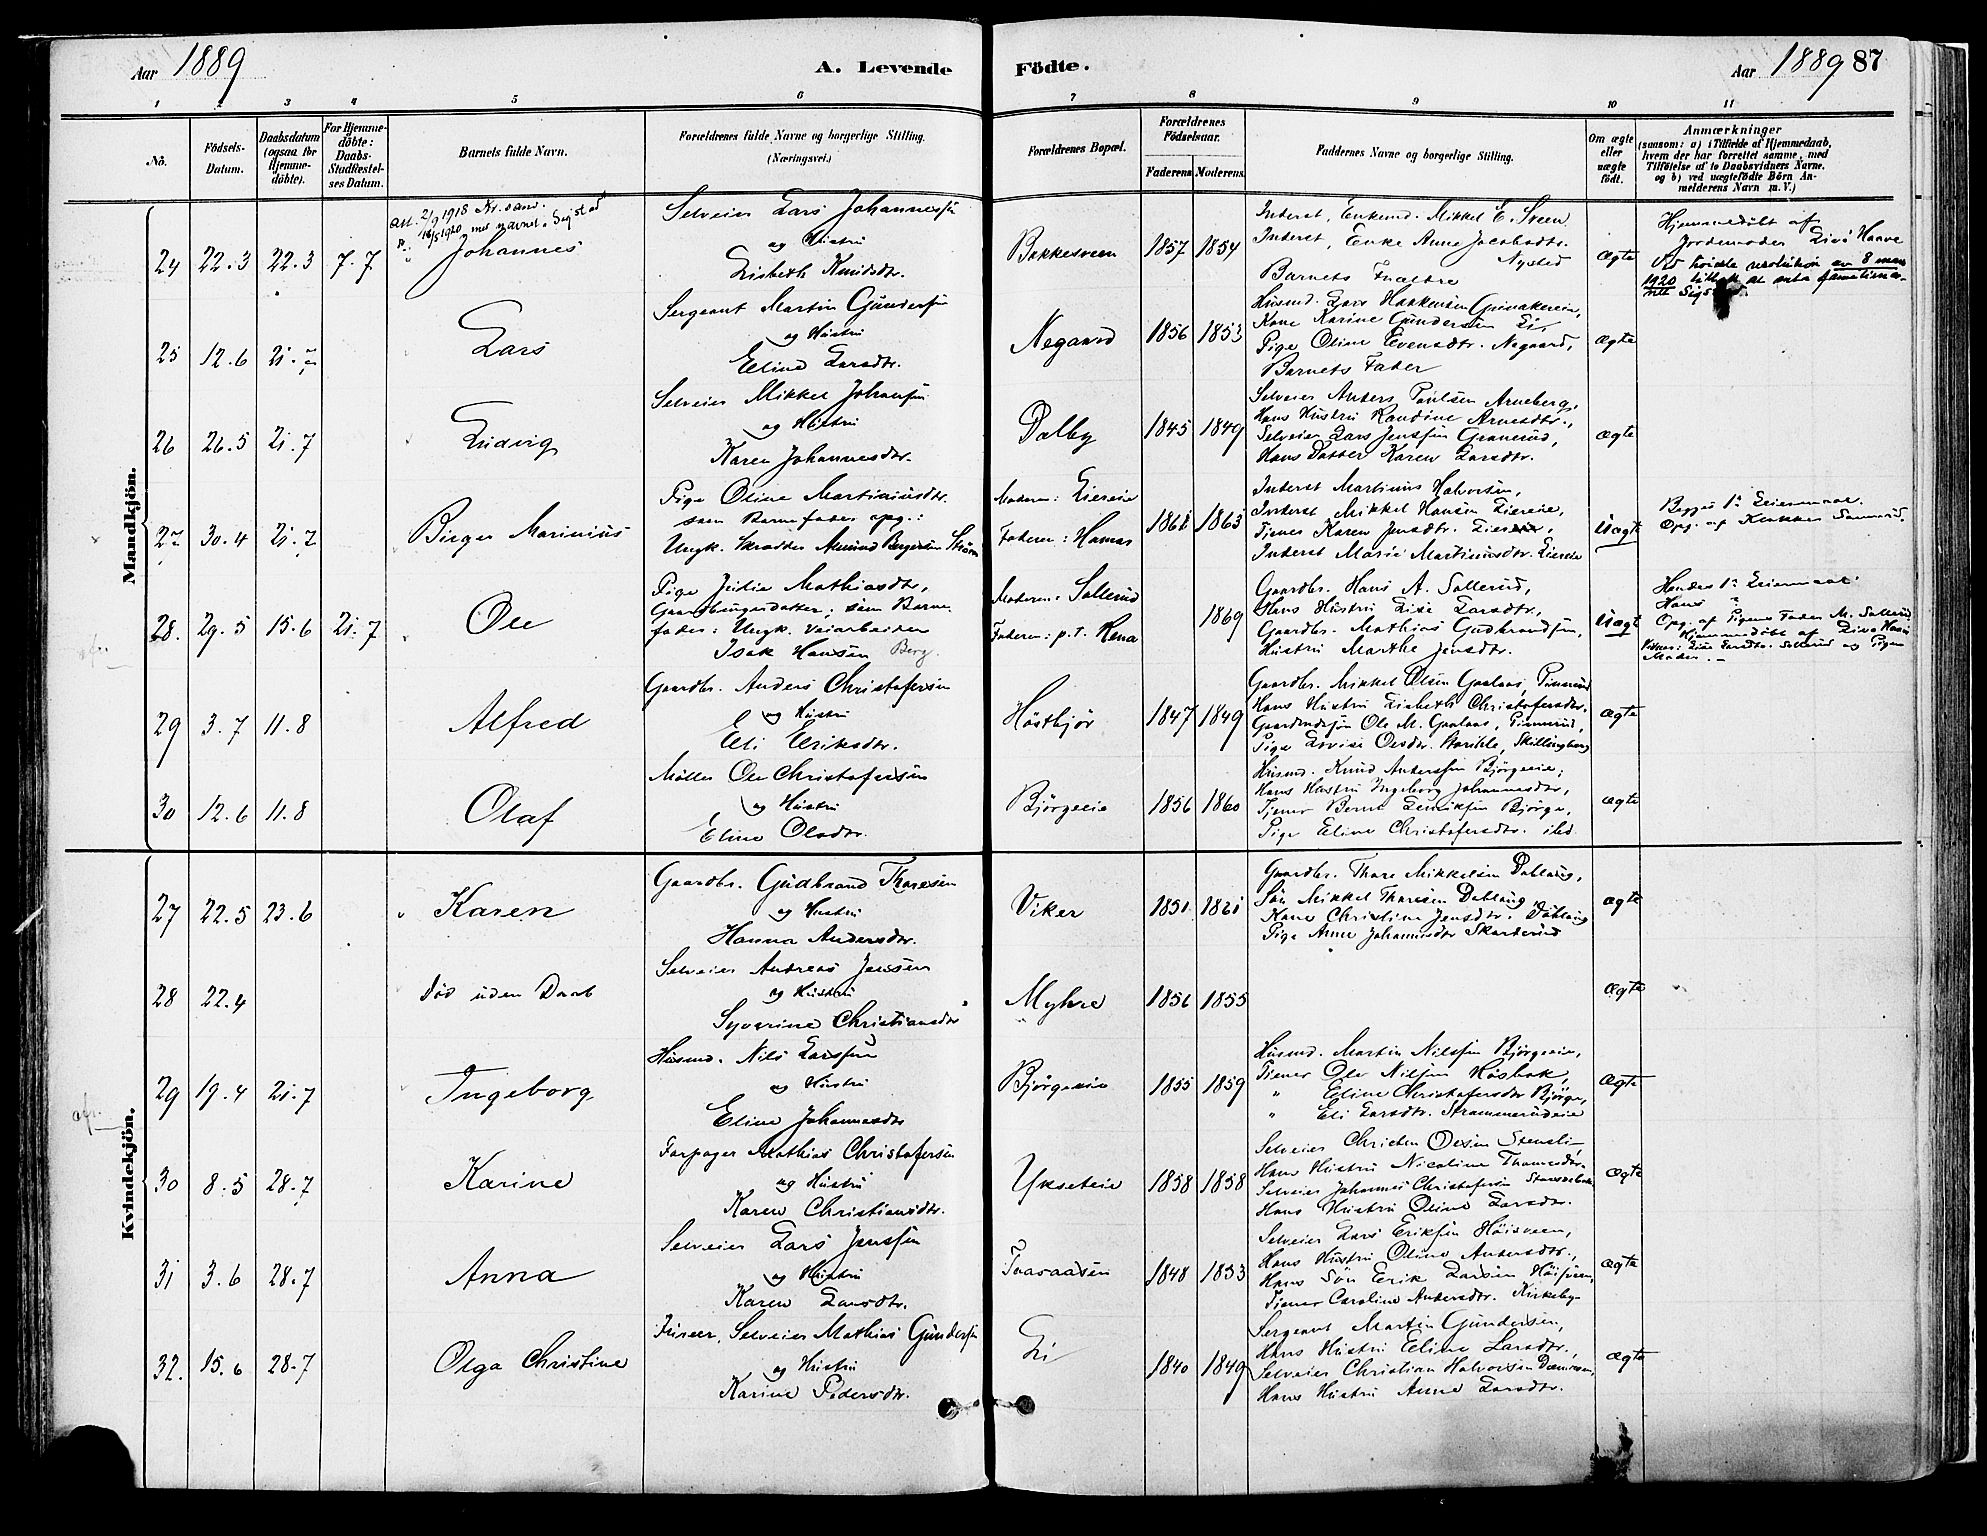 Aar 1889
A. Levende
Födte.
Aar 1889 87
1 2 3 4 5 6 7 8 9 10 11
No.
Födsels-Datum.
Daabsdatum (ogsaa for Hjemme-döbte).
For Hjemme-döbte: Daabs-Stadfæstel-ses Datum.
Barnets fulde Navn.
Forældrenes fulde Navne og borgerlige Stilling. (Næringsvei.)
Forældrenes Bopæl.
Forældrenes Födselsaar.
Faderens Moderens.
Faddernes Navne og borgerlige Stilling.
Om ægte eller uægte födt.
Anmærkninger
(saasom: a) i Tilfælde af Hjemmedaab,
hvem der har forrettet samme, med
Tilföielse af to Daabsvidners Navne.
og b) ved uægtefödte Börn An-
melderens Navn m. V.)
Mandkjön.
Att. 2/9 1918
24 22.3 22.3 7.7 Johannes
Selveier Lars Johannesen
og Hustru
Lisbeth Knudsdtr.
Bakkesveen 1857 1854
Inderst, Enkemd. Mikkel E. Sveen
Inderst, Enke Anne Jacobsdtr.
Nysted
Barnets Forældre
ægte
Hjemmedöbt af
Jordemoder Live Haave
25 12.6 21.7 Lars
Sergeant Martin Gundersen
og Hustru
Eline Larsdtr.
Negaard 1856 1853
Kone Karine Gundersen Li,
Pige Oline Evensdtr. Negaard,
Barnets Fader
ægte
26 26.5 21.7 Ludvig
Selveier Mikkel Johansen
og Hustru
Karen Johannesdtr.
Dalby 1845 1849
Selveier Anders Paulsen Arneberg,
Hans Hustru Randine Arnesdtr.,
Selveier Lars Jensen Granerud,
Hans Datter Karen Larsdtr.
ægte
27 30.4 21.7 Birger Marinius
Pige Oline Martiniusdtr.
som Barnefader opg.:
Ungk. Skrædder Amund Bergersen Ström
Moderen: Liereie
Faderen: Hamar
1863
Inderst Martinus Halvorsen,
Inderst Mikkel Hansen Liereie,
Tjener Karen Jensdtr. Liereie,
Inderst Marie Martinusdtr. Liereie
Uægte
Begges 1ste Leiermaal.
Opg. af Klokker Sannerud.
28. 29.5 15.6 21.7 Ole
Pige Julie Mathiasdtr,
Gaardbrugerdatter; som Barne-
fader: Ungk. Veiarbeider
Isak Hansen Berg.
Moderen: Sollerud
Faderen: p.t. Rena
1869
Gaardbr. Hans A. Sollerud,
Hans Hustru Lise Larsdtr.,
Gaardbr. Mathias Gudbrandsen,
Hustru Marthe Jensdtr.
Uægte
Hendes 1ste Leiermaal.
Hans "
Opg. af Pigens Fader M. Sollerud
29 3.7 11.8 Alfred
Gaardbr. Anders Christofersen
og Hustru
Eli Eriksdtr.
Höstbjör 1847 1849
Gaardbr. Mikkel Olsen Gaalaas, Pinnerud
Hans Hustru Lisbeth Christofersdtr.,
Ole M. Gaalaas, Pinnerud,
ægte
30 12.6 11.8 Olaf
Möller Ole Christofersen
og Hustru
Eline Olsdtr.
Björgeeie 1856 1860
Husmd. Knud Andersen Björgeeie,
Hans Hustru Ingeborg Johannesdtr.,
Pige Eline Christofersdtr. ibd.
ægte
Kvindekjön.
27 22.5 23.6 Karen
Gaardbr. Gudbrand Thoresen
og Hustru
Hanna Andersdtr.
Viker 1851 1861
Gaardbr. Thore Mikkelsen Dobloug,
Sön Mikkel Thoresen Dobloug,
Kone Christine Jensdtr. Dobloug
Pige Anne Johannesdtr Skarderud
ægte
28 22.4 död uden Daab
Selveier Andreas Jensen
og Hustru
Syverine Christiansdtr
Myhre 1856 1855
ægte
29 19.4 21.7 Ingeborg
Husmd. Nils Larsen
og Hustru
Eline Johannesdtr
Björgeeie 1855 1859
Husmd. Martin Nilsen Björgeeie,
Tjener Ole Nilsen Hösbak,
" Eline Christofersdtr Björge,
" Eli Larsdtr. Strammerudeie
ægte
30 8.5 28.7 Karine
Forpagter Mathias Christofersen
og Hustru
Karen Christiansdtr.
Ykseteie 1858 1858
Selveier Christen Olsen Stensli
Hans Hustru Nicoline Thomesdtr.
Selveier Johannes Christofersen
Hans Hustru Oline Larsdtr.
ægte
31 3.6 28.7 Anna
Selveier Lars Jensen
og Hustru
Karen Larsdtr.
Tvaraasen 1848 1853
Selveier Lars Eriksen Höisveen,
Hans Hustru Oline Andersdtr.,
Hans Sön Erik Larsen Höisveen,
Tjener Caroline Andersdtr. Kirkeby
ægte
32. 15.6 28.7 Olga Christine
Selveier Mathias Gundersen
og Hustru
Karine Pedersdtr.
Li 1840 1849
Sergeant Martin Gundersen,
Hans Hustru Eline Larsdtr.,
Selveier Christian Halvorsen
Hans Hustru Anne Larsdtr.
ægte